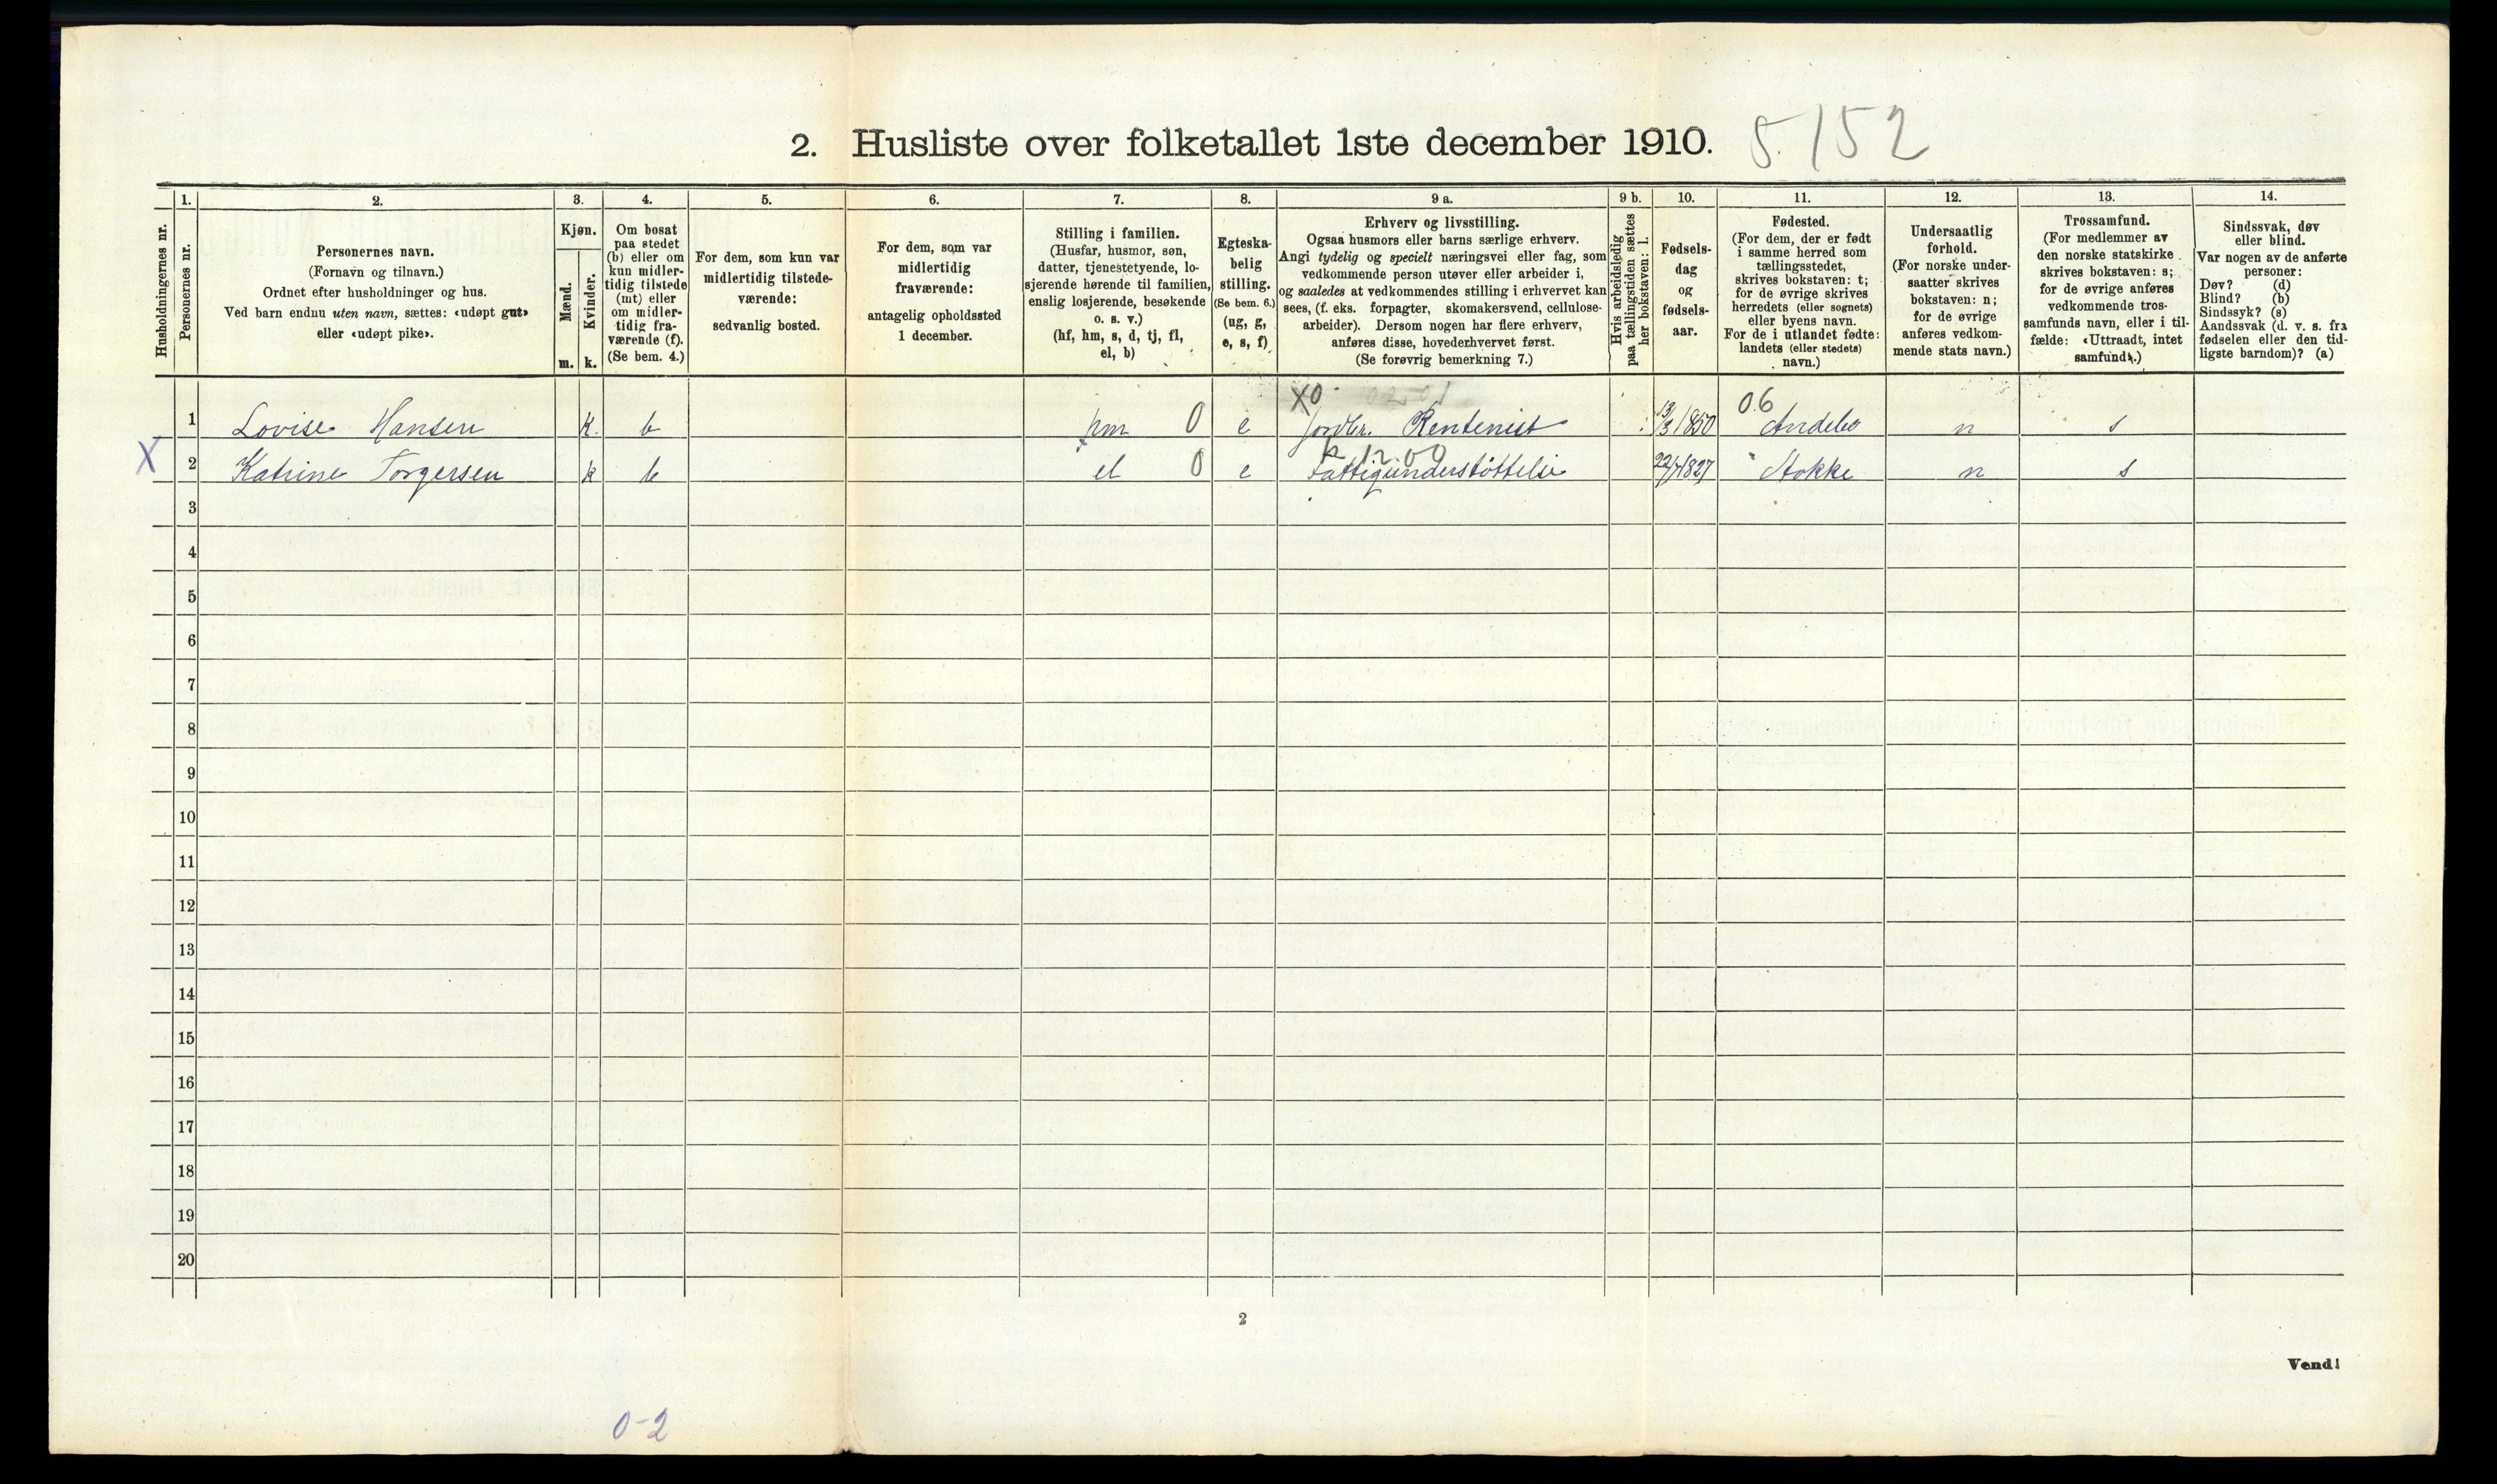 2. Husliste over folketallet 1ste december 1910. 5.152
Husholdningernes nr.
1.
Personernes nr.
2.
Personernes navn.
(Fornavn og tilnavn.)
Ordnet efter husholdninger og hus.
Ved barn endnu uten navn, sættes: «udøpt gut»
eller «udøpt pike».
3.
Kjøn.
Mænd.
Kvinder.
m. k.
4.
Om bosat
paa stedet
(b) eller om
kun midler-
tidig tilstede
(mt) eller
om midler-
tidig fra-
værende (f).
(Se bem. 4.)
5.
For dem, som kun var
midlertidig tilstede-
værende:
sedvanlig bosted.
6.
For dem, som var
midlertidig
fraværende:
antagelig opholdssted
1 december.
7.
Stilling i familien.
(Husfar, husmor, søn,
datter, tjenestetyende, lo-
sjerende hørende til familien,
enslig losjerende, besøkende
o. s. v.)
(hf, hm, s, d, tj, fl,
el, b)
8.
Egteska-
belig
stilling.
(Se bem. 6.)
(ug, g,
e, s, f)
9 a.
Erhverv og livsstilling.
Ogsaa husmors eller barns særlige erhverv.
Angi tydelig og specielt næringsvei eller fag, som
vedkommende person utøver eller arbeider i,
og saaledes at vedkommendes stilling i erhvervet kan
sees, (f. eks. forpagter, skomakersvend, cellulose-
arbeider). Dersom nogen har flere erhverv,
anføres disse, hovederhvervet først.
(Se forøvrig bemerkning 7.)
9 b.
Hvis arbeidsledig
paa tællingstiden sættes
her bokstaven: l.
10.
Fødsels-
dag
og
fødsels-
aar.
11.
Fødested.
(For dem, der er født
i samme herred som
tællingsstedet,
skrives bokstaven: t;
for de øvrige skrives
herredets (eller sognets)
eller byens navn.
For de i utlandet fødte:
landets (eller stedets)
navn.)
12.
Undersaatlig
forhold.
(For norske under-
saatter skrives
bokstaven: n;
for de øvrige
anføres vedkom-
mende stats navn.)
13.
Trossamfund.
(For medlemmer av
den norske statskirke
skrives bokstaven: s;
for de øvrige anføres
vedkommende tros-
samfunds navn, eller i til-
fælde: «Uttraadt, intet
samfund».)
14.
Sindssvak, døv
eller blind.
Var nogen av de anførte
personer:
Døv? (d)
Blind? (b)
Sindssyk? (s)
Aandssvak (d. v. s. fra
fødselen eller den tid-
ligste barndom)? (a)
X0 06
1 Lovise Hansen k. b hm 0 e Jordbr. Rentenist 13/3 1850 Andebo n s
12.00
X 2 Katrine Torgersen k b el 0 e Fattigunderstöttelse 22/7 1827 Stokke n s
3
4
5
6
7
8
9
10
11
12
13
14
15
16
17
18
19
20
2
Vend!
0-2